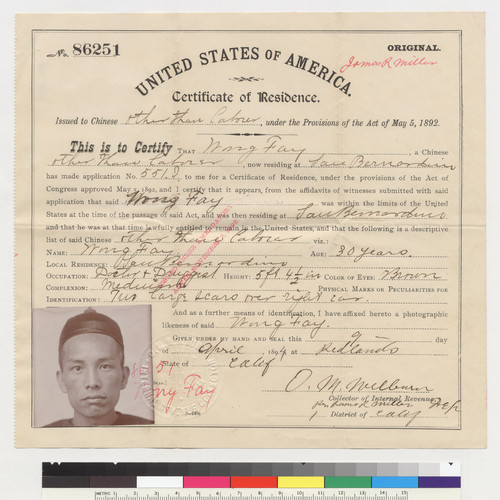 No. 86251
ORIGINAL.
James R Miller
UNITED STATES OF AMERICA.
Certificate of Residence.
Issued to Chinese other than Laborer, under the Provisions of the Act of May 5, 1892.
This is to Certify THAT Wong Fay, a Chinese
other than Laborer, now residing at San Bernardino
has made application No. 5518, to me for a Certificate of Residence, under the provisions of the Act of
Congress approved May 5, 1892, and I certify that it appears, from the affidavits of witnesses submitted with said
application that said Wong Fay was within the limits of the United
States at the time of the passage of said Act, and was then residing at San Bernardino
and that he was at that time lawfully entitled to remain in the United States, and that the following is a descriptive
list of said Chinese other than Laborer viz.:
NAME: Wong Fay AGE: 30 years.
LOCAL RESIDENCE: San Bernardino
OCCUPATION: Doctor & Druggist HEIGHT: 5 ft 4½ in COLOR OF EYES: Brown
COMPLEXION: Medium PHYSICAL MARKS OR PECULIARITIES FOR
IDENTIFICATION: Two large scars over right ear.
And as a further means of identification, I have affixed hereto a photographic
likeness of said Wong Fay.
GIVEN UNDER MY HAND AND SEAL this 9 day
of April 1894, at Redlands
State of Calif
O. M. Welburn
Collector of Internal Revenue,
per James R Miller Dep
1 District of Calif
Wong Fay
METRIC 1 2 3 4 5 6 7 8 9 10 11 12 13 14 15